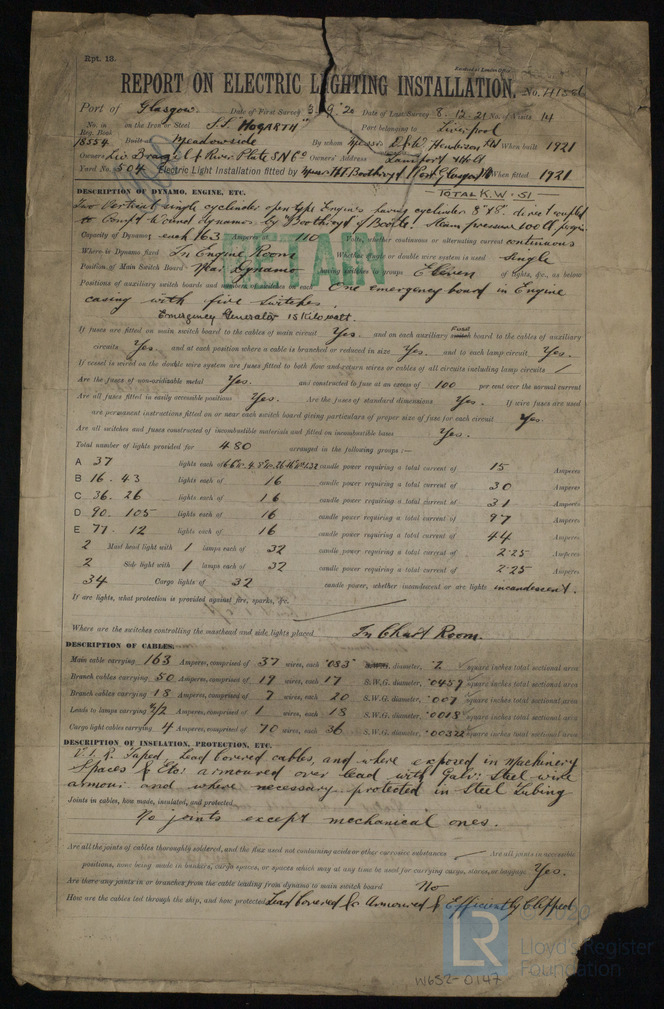 Rpt. 13.
REPORT ON ELECTRIC LIGHTING INSTALLATION. No.
Port of Glasgow. Date of First Survey 3. 9. 20 Date of Last Survey 8. 12. 21 No. of Visits 14
No. in on the Iron or Steel S.S. "HOGARTH" Port belonging to Liverpool
Reg. Book
18554 Built at Meadowside By whom Messrs D. & W. Henderson Ltd When built 1921
Owners Liv Brazil & River Plate S N Co Owners' Address Lamport & Holt
Yard No. 504 Electric Light Installation fitted by When fitted 1921
DESCRIPTION OF DYNAMO, ENGINE, ETC. TOTAL K.W. 51
Two Vertical single cylinder open type Engines having cylinder 8" x 8" direct coupled
to Comp't Wound dynamo by Boothroyd of Bootle. Steam pressure 100 lb
Capacity of Dynamo each 163 Amperes 110 Volts, whether continuous or alternating current continuous
Where is Dynamo fixed In Engine Room Whether single or double wire system is used Single
Position of Main Switch Board Near Dynamo having switches to groups Eleven of lights, &c., as below
Positions of auxiliary switch boards and numbers of switches on each One emergency board in Engine
casing with five switches.
Emergency Generator 15 Kilowatt.
RETAIN
If fuses are fitted on main switch board to the cables of main circuit Yes. and on each auxiliary fused switch board to the cables of auxiliary
circuits Yes. and at each position where a cable is branched or reduced in size Yes. and to each lamp circuit Yes.
If vessel is wired on the double wire system are fuses fitted to both flow and return wires or cables of all circuits including lamp circuits /
Are the fuses of non-oxidizable metal Yes. and constructed to fuse at an excess of 100 per cent over the normal current
Are all fuses fitted in easily accessible positions Yes. Are the fuses of standard dimensions Yes. If wire fuses are used
are permanent instructions fitted on or near each switch board giving particulars of proper size of fuse for each circuit Yes.
Are all switches and fuses constructed of incombustible materials and fitted on incombustible bases Yes.
Total number of lights provided for 480 arranged in the following groups :—
A 37 lights each of candle power requiring a total current of 15 Amperes
B 16 . 43 lights each of 16 candle power requiring a total current of 30 Amperes
C 36. 26 lights each of 16 candle power requiring a total current of 31 Amperes
D 90. 105 lights each of 16 candle power requiring a total current of 97 Amperes
E 77. 12 lights each of 16 candle power requiring a total current of 44 Amperes
2 Mast head light with 1 lamps each of 32 candle power requiring a total current of 2.25 Amperes
2 Side light with 1 lamps each of 32 candle power requiring a total current of 2.25 Amperes
34 Cargo lights of 32 candle power, whether incandescent or arc lights incandescent.
If arc lights, what protection is provided against fire, sparks, &c.
Where are the switches controlling the masthead and side lights placed In Chart Room.
DESCRIPTION OF CABLES.
Main cable carrying 163 Amperes, comprised of 37 wires, each .083 diameter, .2 square inches total sectional area
Branch cables carrying 50 Amperes, comprised of 19 wires, each 17 S.W.G. diameter, .0457 square inches total sectional area
Branch cables carrying 18 Amperes, comprised of 7 wires, each 20 S.W.G. diameter, .007 square inches total sectional area
Leads to lamps carrying 3/2 Amperes, comprised of 1 wires, each 18 S.W.G. diameter, .0018 square inches total sectional area
Cargo light cables carrying 4 Amperes, comprised of 70 wires, each 36 S.W.G. diameter, .00322 square inches total sectional area
DESCRIPTION OF INSULATION, PROTECTION, ETC.
V.I.R. Taped, Lead covered cables, and where exposed in Machinery
Spaces & Etc: armoured over lead with Galv: Steel wire
armour and where necessary protected in Steel Tubing
Joints in cables, how made, insulated, and protected
No joints except mechanical ones.
Are all the joints of cables thoroughly soldered, and the flux used not containing acid or other corrosive substances Are all joints in accessible
positions, none being made in bunkers, cargo spaces, or spaces which may at any time be used for carrying cargo, stores, or baggage Yes.
Are there any joints in or branches from the cable leading from dynamo to main switch board No
How are the cables led through the ship, and how protected Lead Covered & or Armoured & Efficiently Clipped
LR
© 2020
Lloyd's Register
Foundation
W652-0147